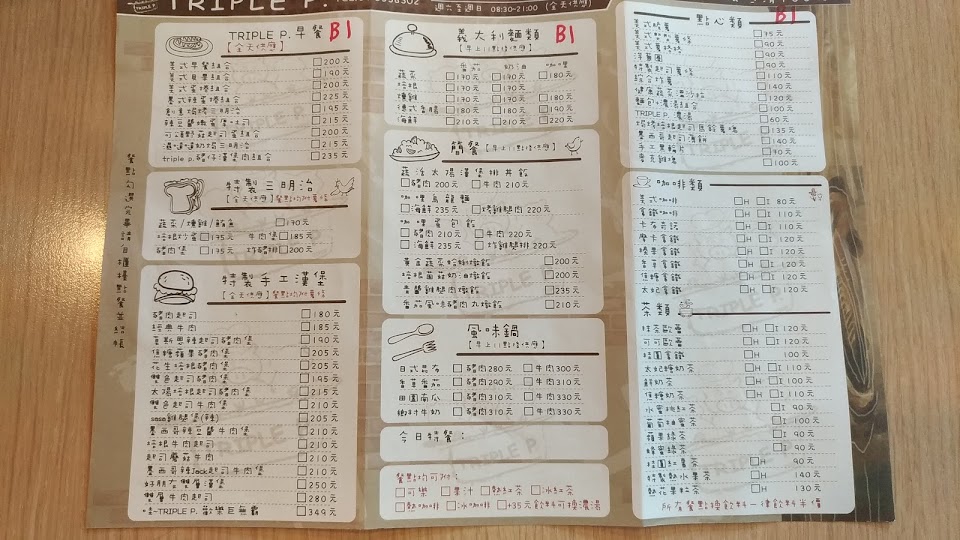 TRIPLE P.
週六至週日 08:30~21:00 (全天供應)
TRIPLE P. 早餐 B1
【全天供應】
美式早餐組合 200元
美式貝果組合 190元
美式蛋捲組合 200元
墨式辣蛋捲組合 225元
195元
215元
200元
235元
triple p.豬仔漢堡肉組合 235元
特製三明治
【全天供應】餐點均附薯條
蔬菜/燻雞/鮪魚 170元
培根炒蛋 175元 牛肉堡 185元
豬肉堡 175元 炸豬排 200元
特製手工漢堡
【全天供應】餐點均附薯條
豬肉起司 180元
經典牛肉 185元
哥斯恩辣起司豬肉堡 190元
焦糖蘋果豬肉堡 205元
花生培根豬肉堡 205元
雙色起司豬肉堡 195元
太陽培根起司豬肉堡 215元
雙色起司牛肉堡 210元
sasa雞腿堡(辣) 205元
墨西哥辣豆醬牛肉堡 210元
培根牛肉起司 210元
起司蘑菇牛肉 210元
墨西哥辣Jack起司牛肉堡 210元
好朋友雙層漢堡 250元
雙層牛肉起司 280元
TRIPLE P. 歡樂巨無霸 349元
義大利麵類 B1
【早上11點後供應】
番茄 奶油 咖哩
蔬菜 170元 170元 180元
培根 170元 170元
燻雞 170元 170元 180元
德式香腸 180元 180元 190元
海鮮 210元 210元 220元
簡餐【早上11點後供應】
蔬活太陽漢堡排丼飯
豬肉 200元 牛肉 210元
咖哩烏龍麵
海鮮 235元 炸雞腿肉 220元
咖哩蛋包飯
豬肉 210元 牛肉 220元
海鮮 235元 炸雞腿肉 220元
黃金蔬菜蛤蜊燉飯 200元
培根菌菇奶油燉飯 200元
青醬雞腿肉燉飯 235元
番茄風味豬肉丸燉飯 210元
風味鍋
【早上11點後供應】
日式昆布 豬肉280元 牛肉300元
香草番茄 豬肉290元 牛肉310元
田園南瓜 豬肉310元 牛肉330元
椰汁牛奶 豬肉310元 牛肉330元
今日特餐:
餐點均可附:
可樂 果汁 熱紅茶 冰紅茶
熱咖啡 冰咖啡 +35元飲料可換濃湯
點心類 B1
美式脆薯 75元
90元
美式薯捲捲 90元
洋蔥圈 90元
特製起司薯條 110元
綜合炸薯 140元
健康蔬菜溫沙拉 120元
麵包+濃湯組合 120元
TRIPLE P. 濃湯 60元
135元
墨西哥起司薄餅 140元
手工薯輪片 70元
麥克雞塊 100元
咖啡類
美式咖啡 H I 80元
拿鐵咖啡 H I 110元
卡布奇諾 H I 110元
摩卡拿鐵 H I 120元
榛果拿鐵 H I 120元
香草拿鐵 H I 120元
焦糖拿鐵 H I 120元
太妃拿鐵 H I 120元
茶類
抹茶歐蕾 H I 120元
可可歐蕾 H I 120元
桂圓拿鐵 H 100元
太妃糖奶茶 H I 110元
鮮奶茶 H I 100元
焦糖奶茶 H I 110元
水蜜桃紅茶 I 90元
葡萄柚蜜茶 I 100元
蘋果綠茶 I 90元
蜂蜜綠茶 I 90元
桂圓紅棗茶 H 90元
特製熱水果茶 H 140元
熱花果粒茶 H 130元
所有餐點換飲料一律飲料半價
餐點勾選完畢請自櫃檯點餐並結帳